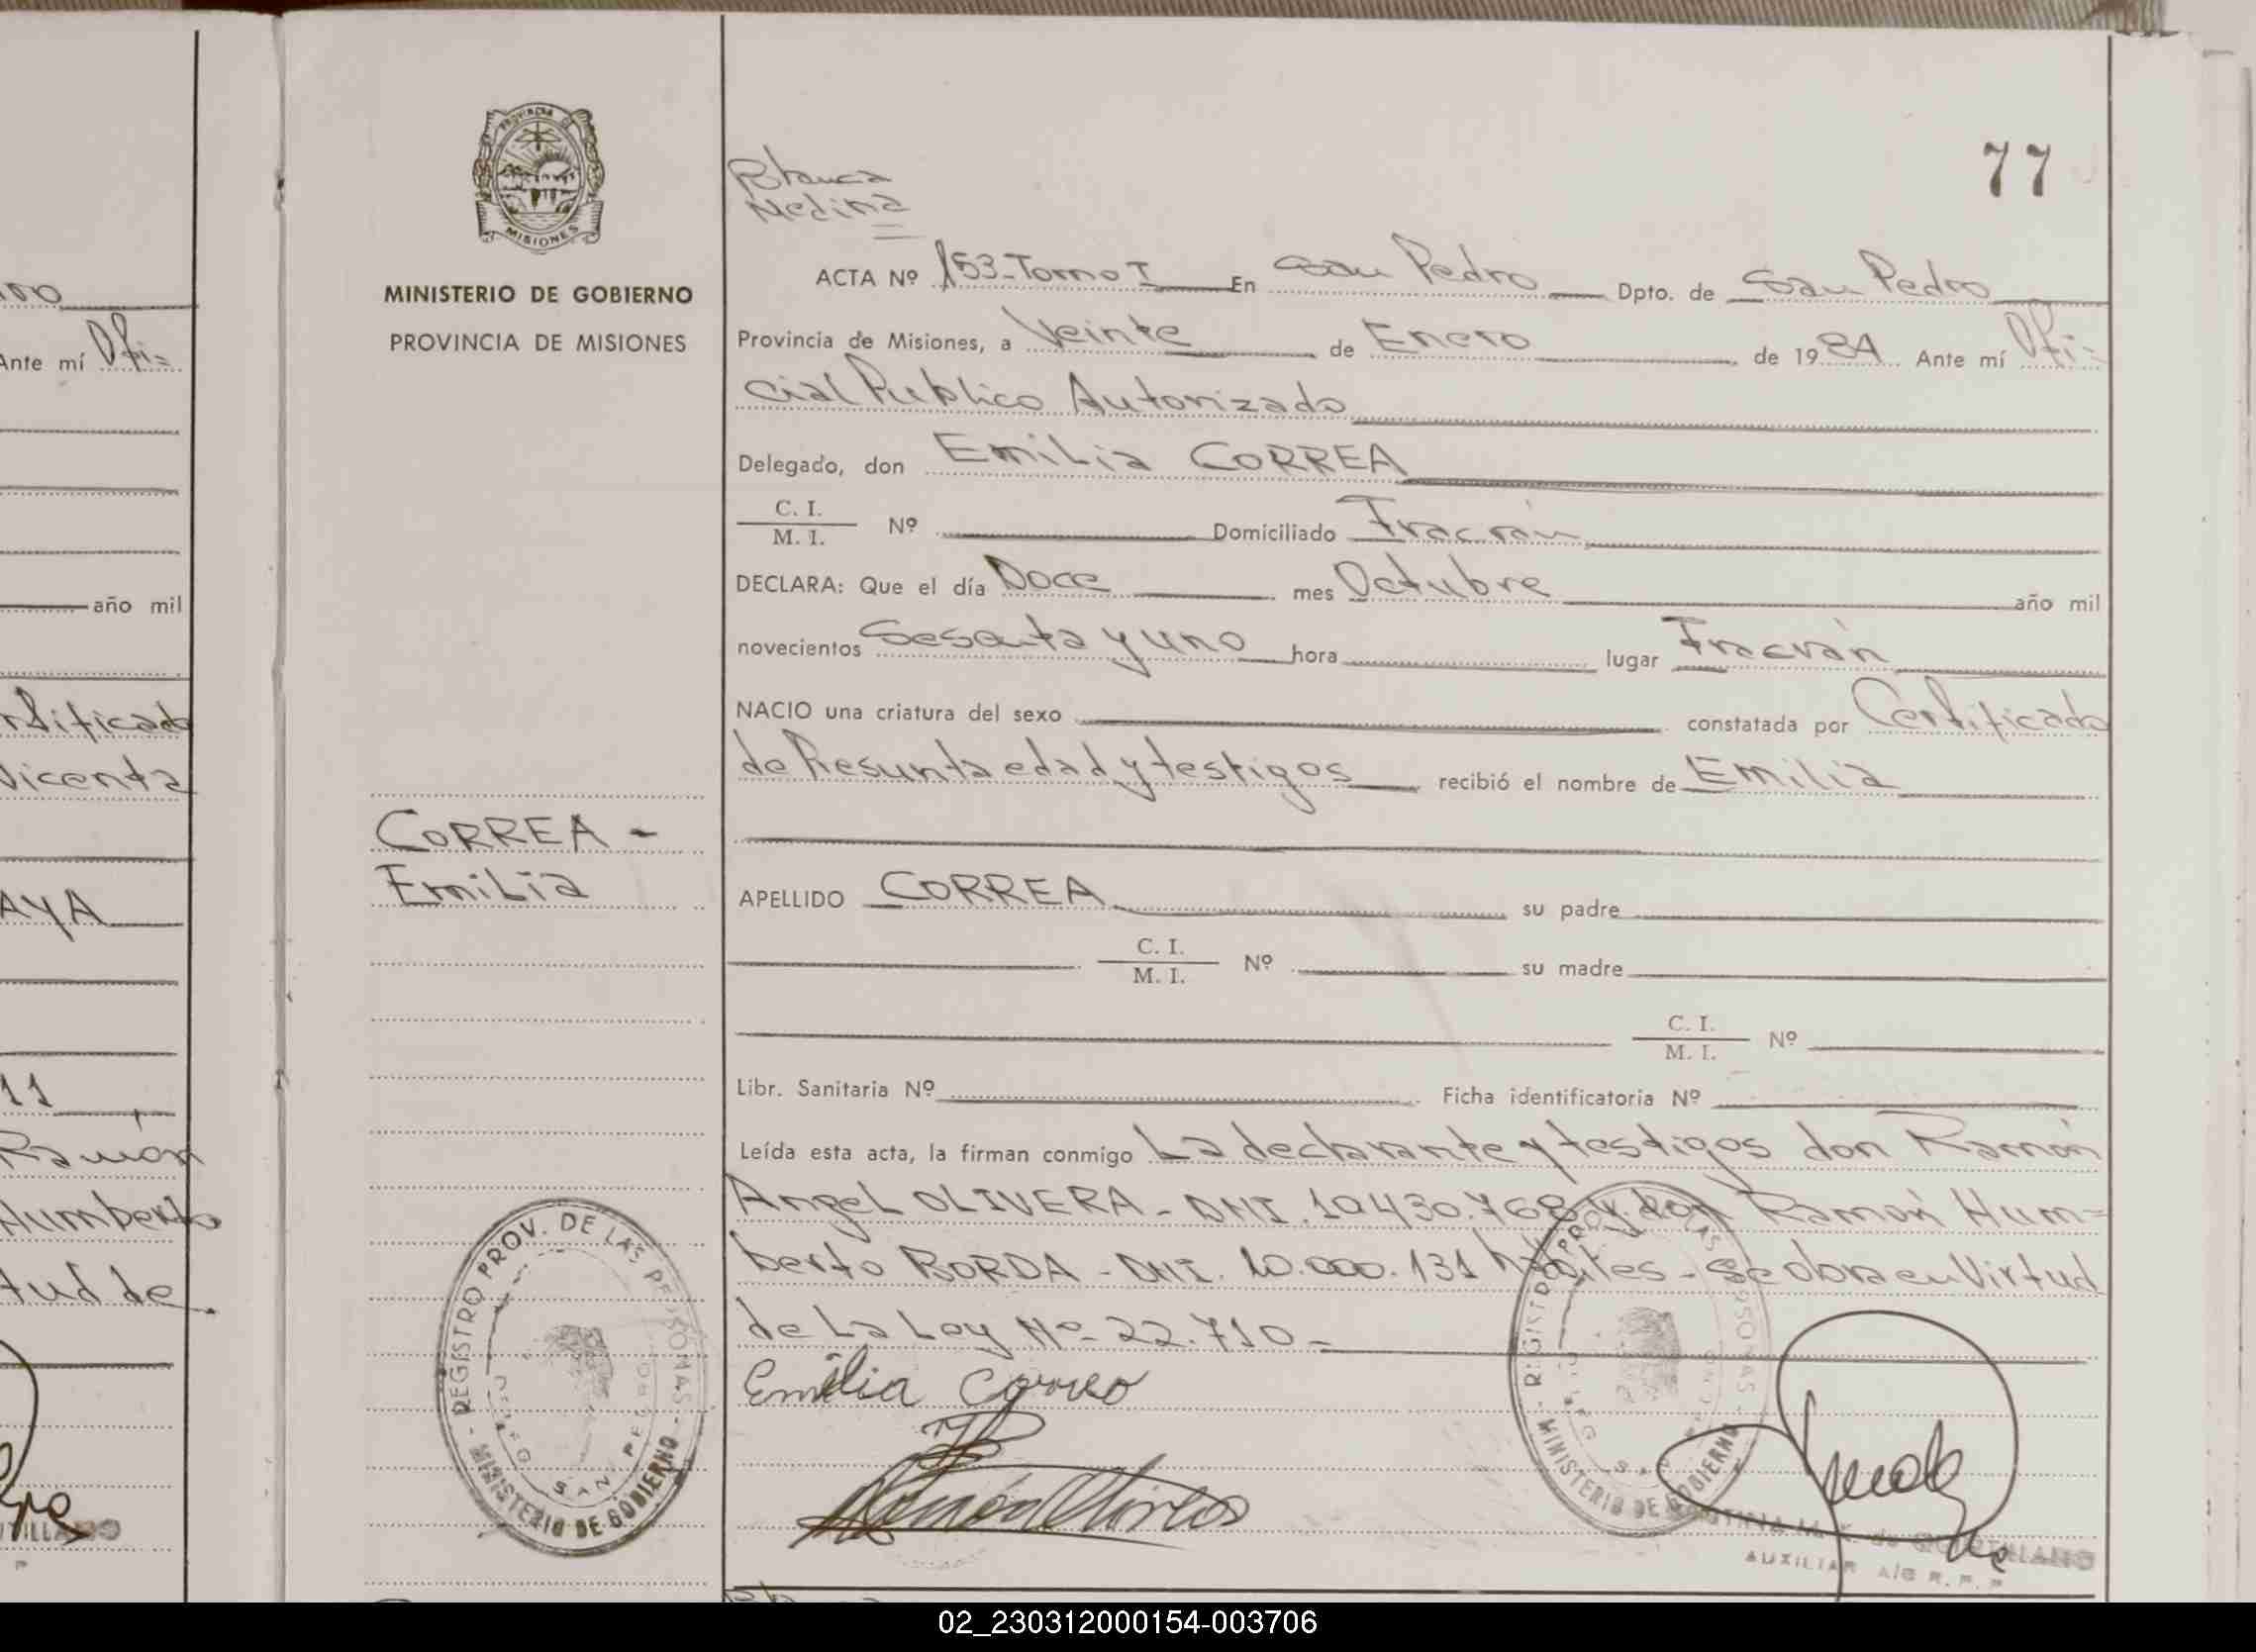 so
Ante mí Ofi=
año mil
Vicenta
AYA
11
Ramón
Humberto
tud de
PROVINCIA DE
MISIONES
MINISTERIO DE GOBIERNO
PROVINCIA DE MISIONES
CORREA -
Emilia
REGISTRO PROV. DE LAS PERSONAS - MINISTERIO DE GOBIERNO
SAN PEDRO
77
Blanca
Medina
ACTA Nº 153-Tomo I En San Pedro Dpto. de San Pedro
Provincia de Misiones, a Veinte de Enero de 1984 Ante mí Ofi=
cial Publico Autorizado
Delegado, don Emilia CORREA
C. I.
M. I. Nº Domiciliado Fracrán
DECLARA: Que el día Doce mes Octubre año mil
novecientos Sesenta y uno hora lugar Fracrán
NACIO una criatura del sexo constatada por Certificado
de Presunta edad y testigos recibió el nombre de Emilia
APELLIDO CORREA su padre
C. I.
M. I. Nº su madre
C. I.
M. I. Nº
Libr. Sanitaria Nº Ficha identificatoria Nº
Leída esta acta, la firman conmigo La declarante y testigos don Ramón
Angel OLIVERA - DNI. 10.430.768 y don Ramón Hum=
berto BORDA - DNI. 10.000.131 hábiles - Se obra en Virtud
de La Ley Nº 22.710 -
Emilia Correa
REGISTRO PROV. DE LAS PERSONAS - MINISTERIO DE GOBIERNO
de QUINTILLANO
AUXILIAR A/C R. P. P
02_230312000154-003706